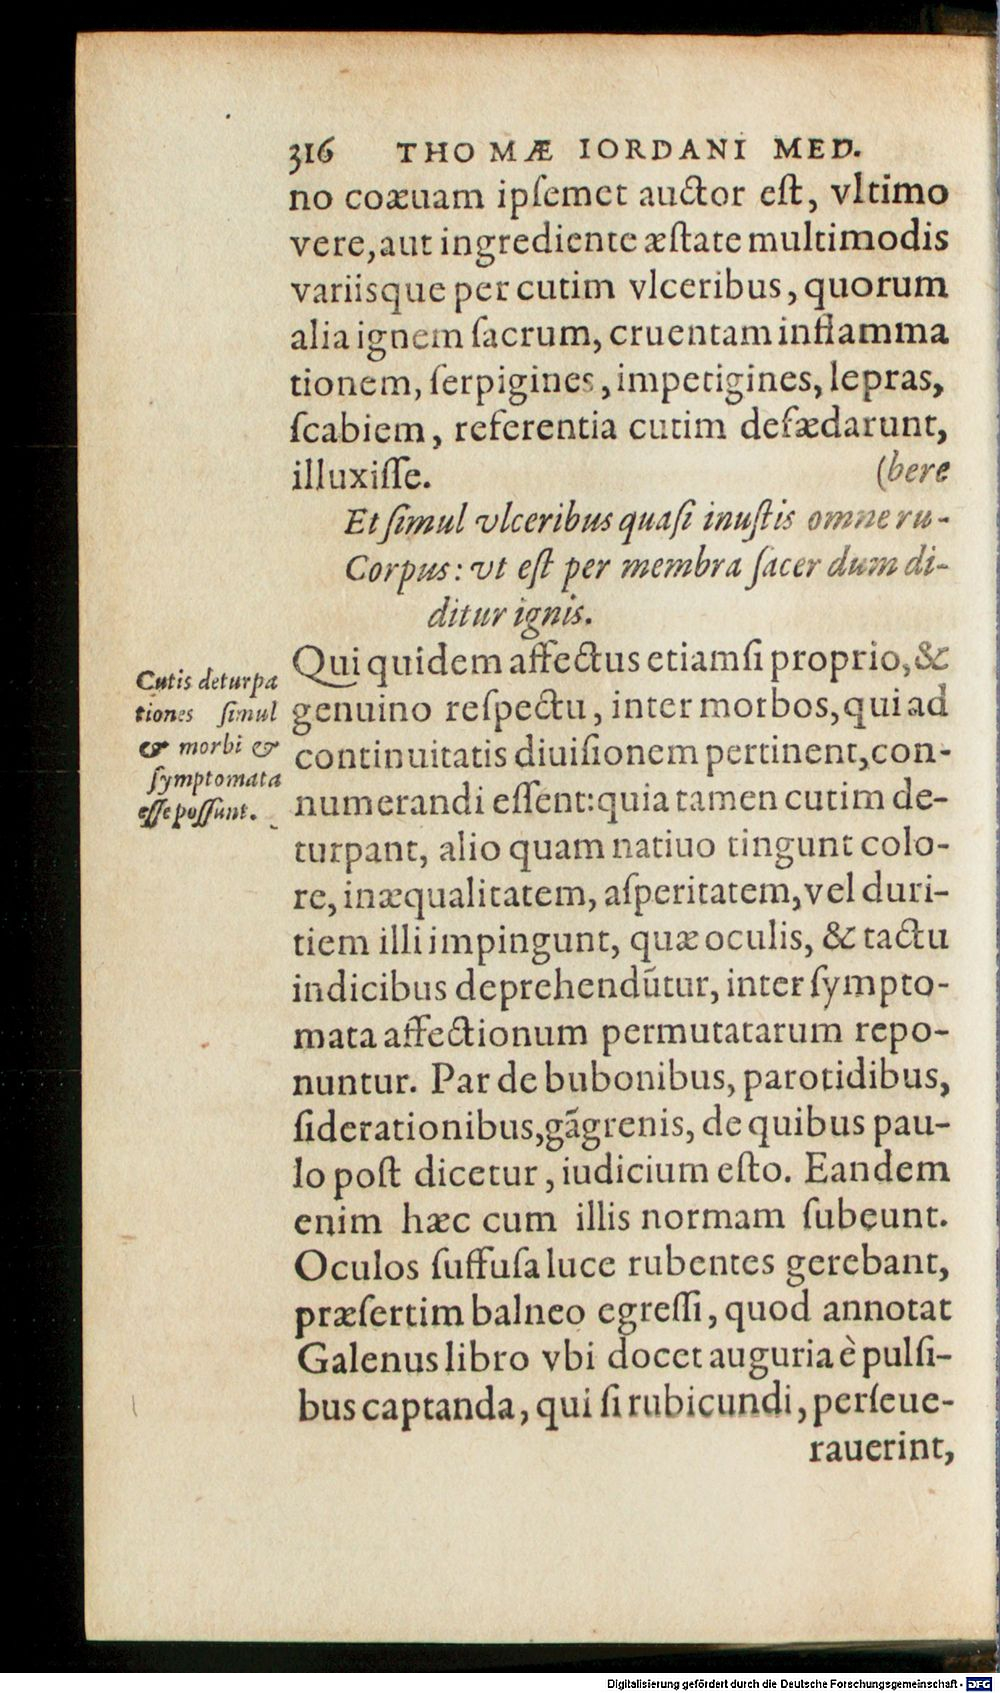 316 THOMÆ IORDANI MED.
no coæuam ipſemet auctor eſt, vltimo
vere, aut ingrediente æſtate multimodis
variisque per cutim vlceribus, quorum
alia ignem ſacrum, cruentam inflamma
tionem, ſerpigines, impetigines, lepras,
ſcabiem, referentia cutim defædarunt,
illuxiſſe. (bere
Et ſimul vlceribus quaſi inuſtis omne ru-
Corpus: vt eſt per membra ſacer dum di-
ditur ignis.
Qui quidem affectus etiamſi proprio, &
genuino reſpectu, inter morbos, qui ad
continuitatis diuiſionem pertinent, con-
numerandi eſſent: quia tamen cutim de-
turpant, alio quam natiuo tingunt colo-
re, inæqualitatem, aſperitatem, vel duri-
tiem illi impingunt, quæ oculis, & tactu
indicibus deprehendūtur, inter ſympto-
mata affectionum permutatarum repo-
nuntur. Par de bubonibus, parotidibus,
ſiderationibus, gāgrenis, de quibus pau-
lo poſt dicetur, iudicium eſto. Eandem
enim hæc cum illis normam ſubeunt.
Oculos ſuffuſa luce rubentes gerebant,
præſertim balneo egreſſi, quod annotat
Galenus libro vbi docet auguria è pulſi-
bus captanda, qui ſi rubicundi, perſeue-
rauerint,
Cutis deturpa
tiones ſimul
& morbi &
ſymptomata
eſſe poſſunt.
Digitalisierung gefördert durch die Deutsche Forschungsgemeinschaft - DFG